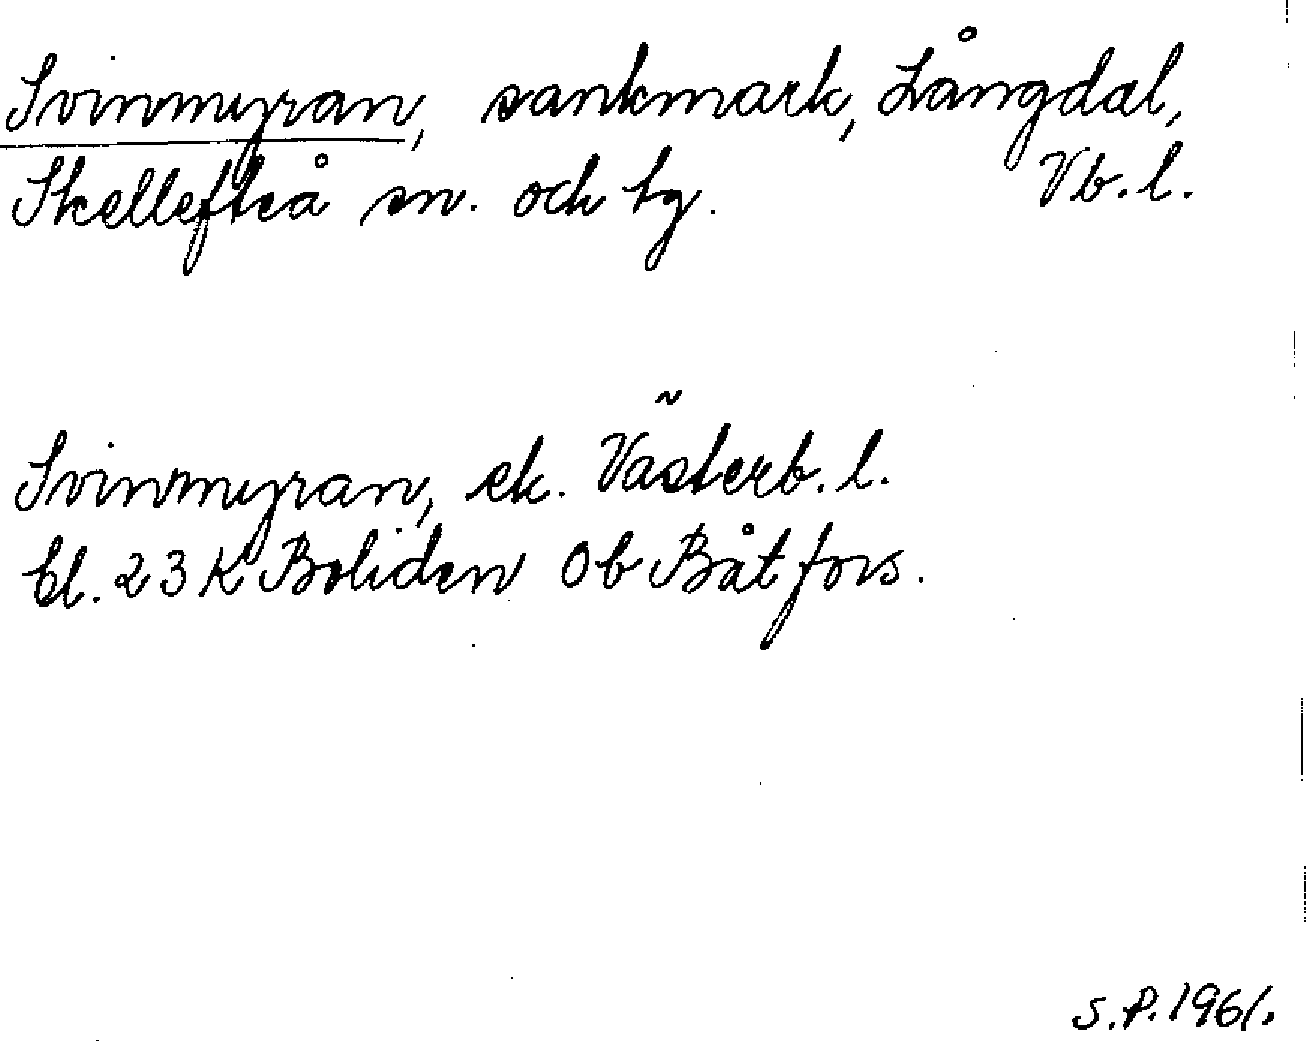 Svinmyran, sankmark, Långdal,
Skellefteå sn. och tg. Vb. l.
Svinmyran, ek. Västerb. l.
bl. 23 K Boliden 0b Båtfors.
S.P. 1961.